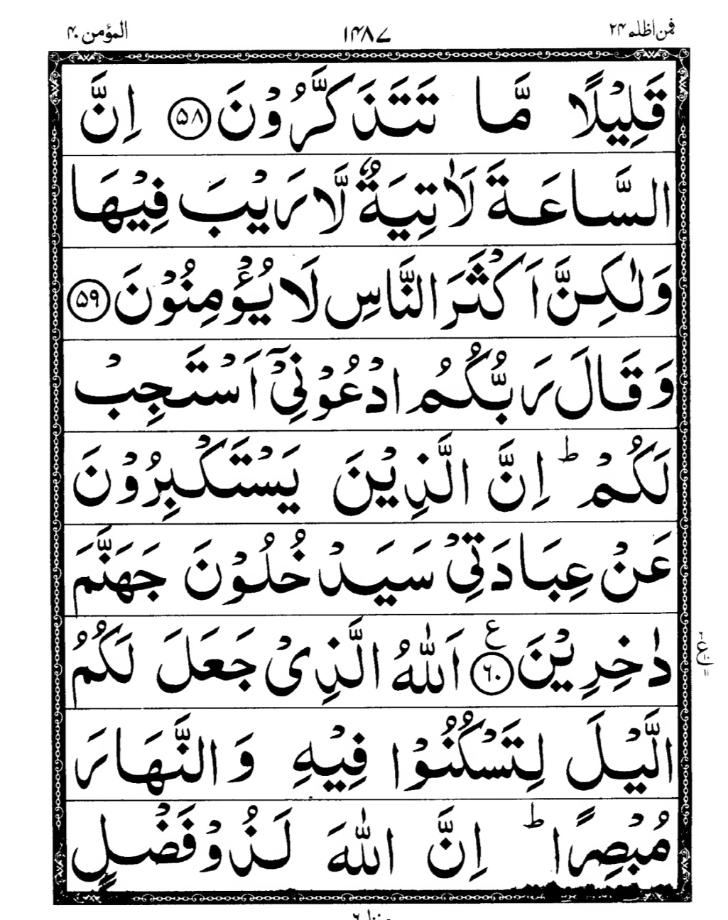 فمن اظلم ۲۴ ۱۴۸۷ المؤمن ۴۰
قَلِيْلًا مَّا تَتَذَكَّرُوْنَ ۝۵۸ اِنَّ
السَّاعَةَ لَاٰتِيَةٌ لَّا رَيْبَ فِيْهَا
وَلٰكِنَّ اَكْثَرَ النَّاسِ لَا يُؤْمِنُوْنَ ۝۵۹
وَقَالَ رَبُّكُمُ ادْعُوْنِيْۤ اَسْتَجِبْ
لَكُمْ ؕ اِنَّ الَّذِيْنَ يَسْتَكْبِرُوْنَ
عَنْ عِبَادَتِيْ سَيَدْخُلُوْنَ جَهَنَّمَ
دٰخِرِيْنَ ۝۶۰ ع اَللّٰهُ الَّذِيْ جَعَلَ لَكُمُ
الَّيْلَ لِتَسْكُنُوْا فِيْهِ وَالنَّهَارَ
مُبْصِرًا ؕ اِنَّ اللّٰهَ لَذُوْ فَضْلٍ